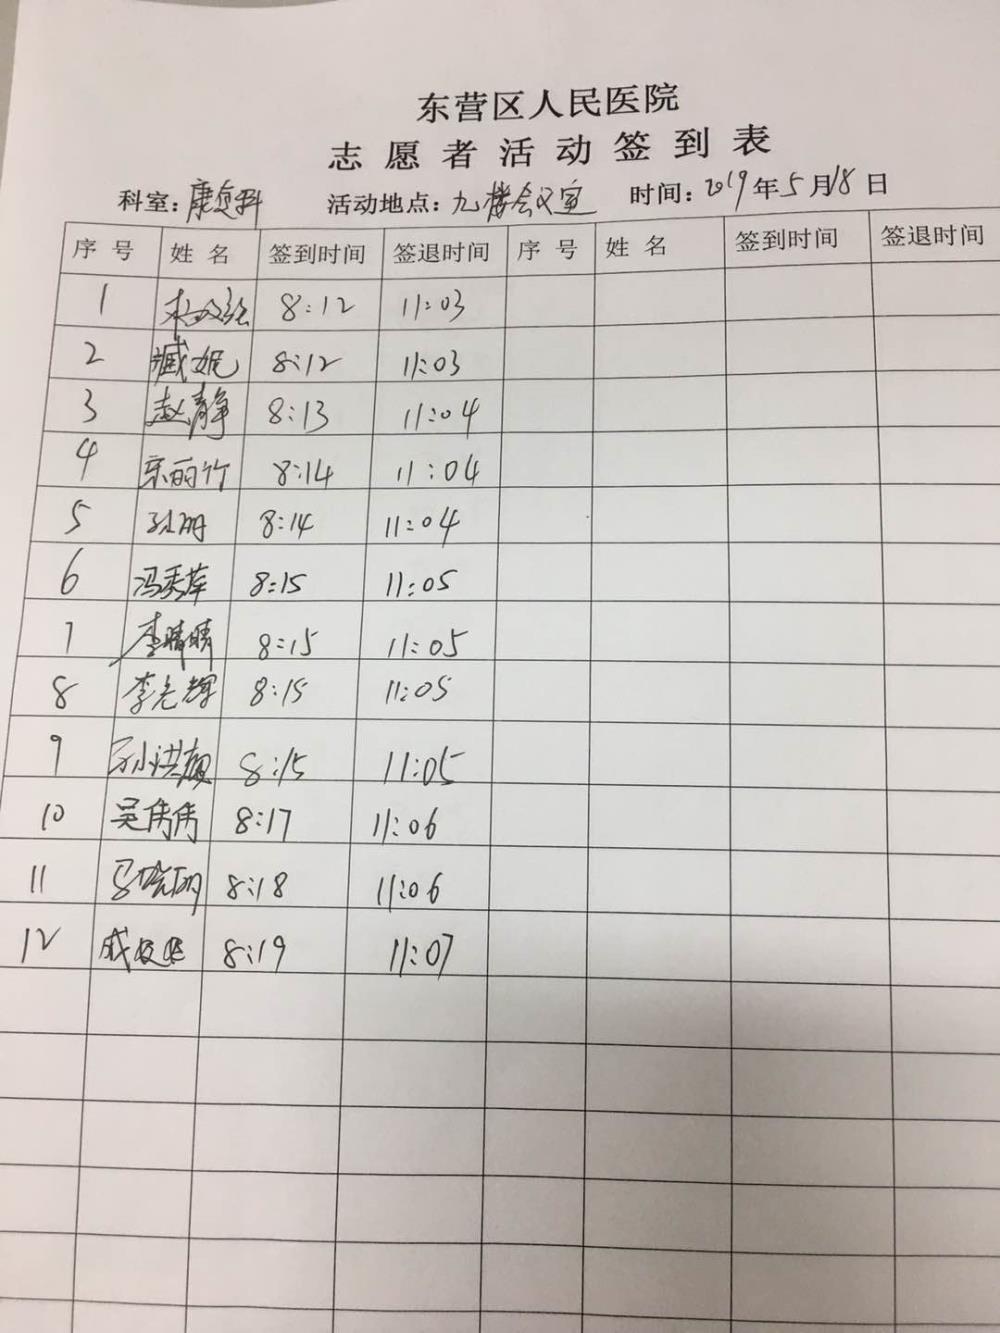 东营区人民医院
志愿者活动签到表
科室：康复科 活动地点：九楼会议室 时间：2019年5月18日
序号 姓名 签到时间 签退时间 序号 姓名 签到时间 签退时间
1 8:12 11:03
2 臧妮 8:12 11:03
3 赵静 8:13 11:04
4 宋丽竹 8:14 11:04
5 孙明 8:14 11:04
6 冯秀萍 8:15 11:05
7 李晴晴 8:15 11:05
8 李光辉 8:15 11:05
9 8:15 11:05
10 吴隽隽 8:17 11:06
11 8:18 11:06
12 8:19 11:07